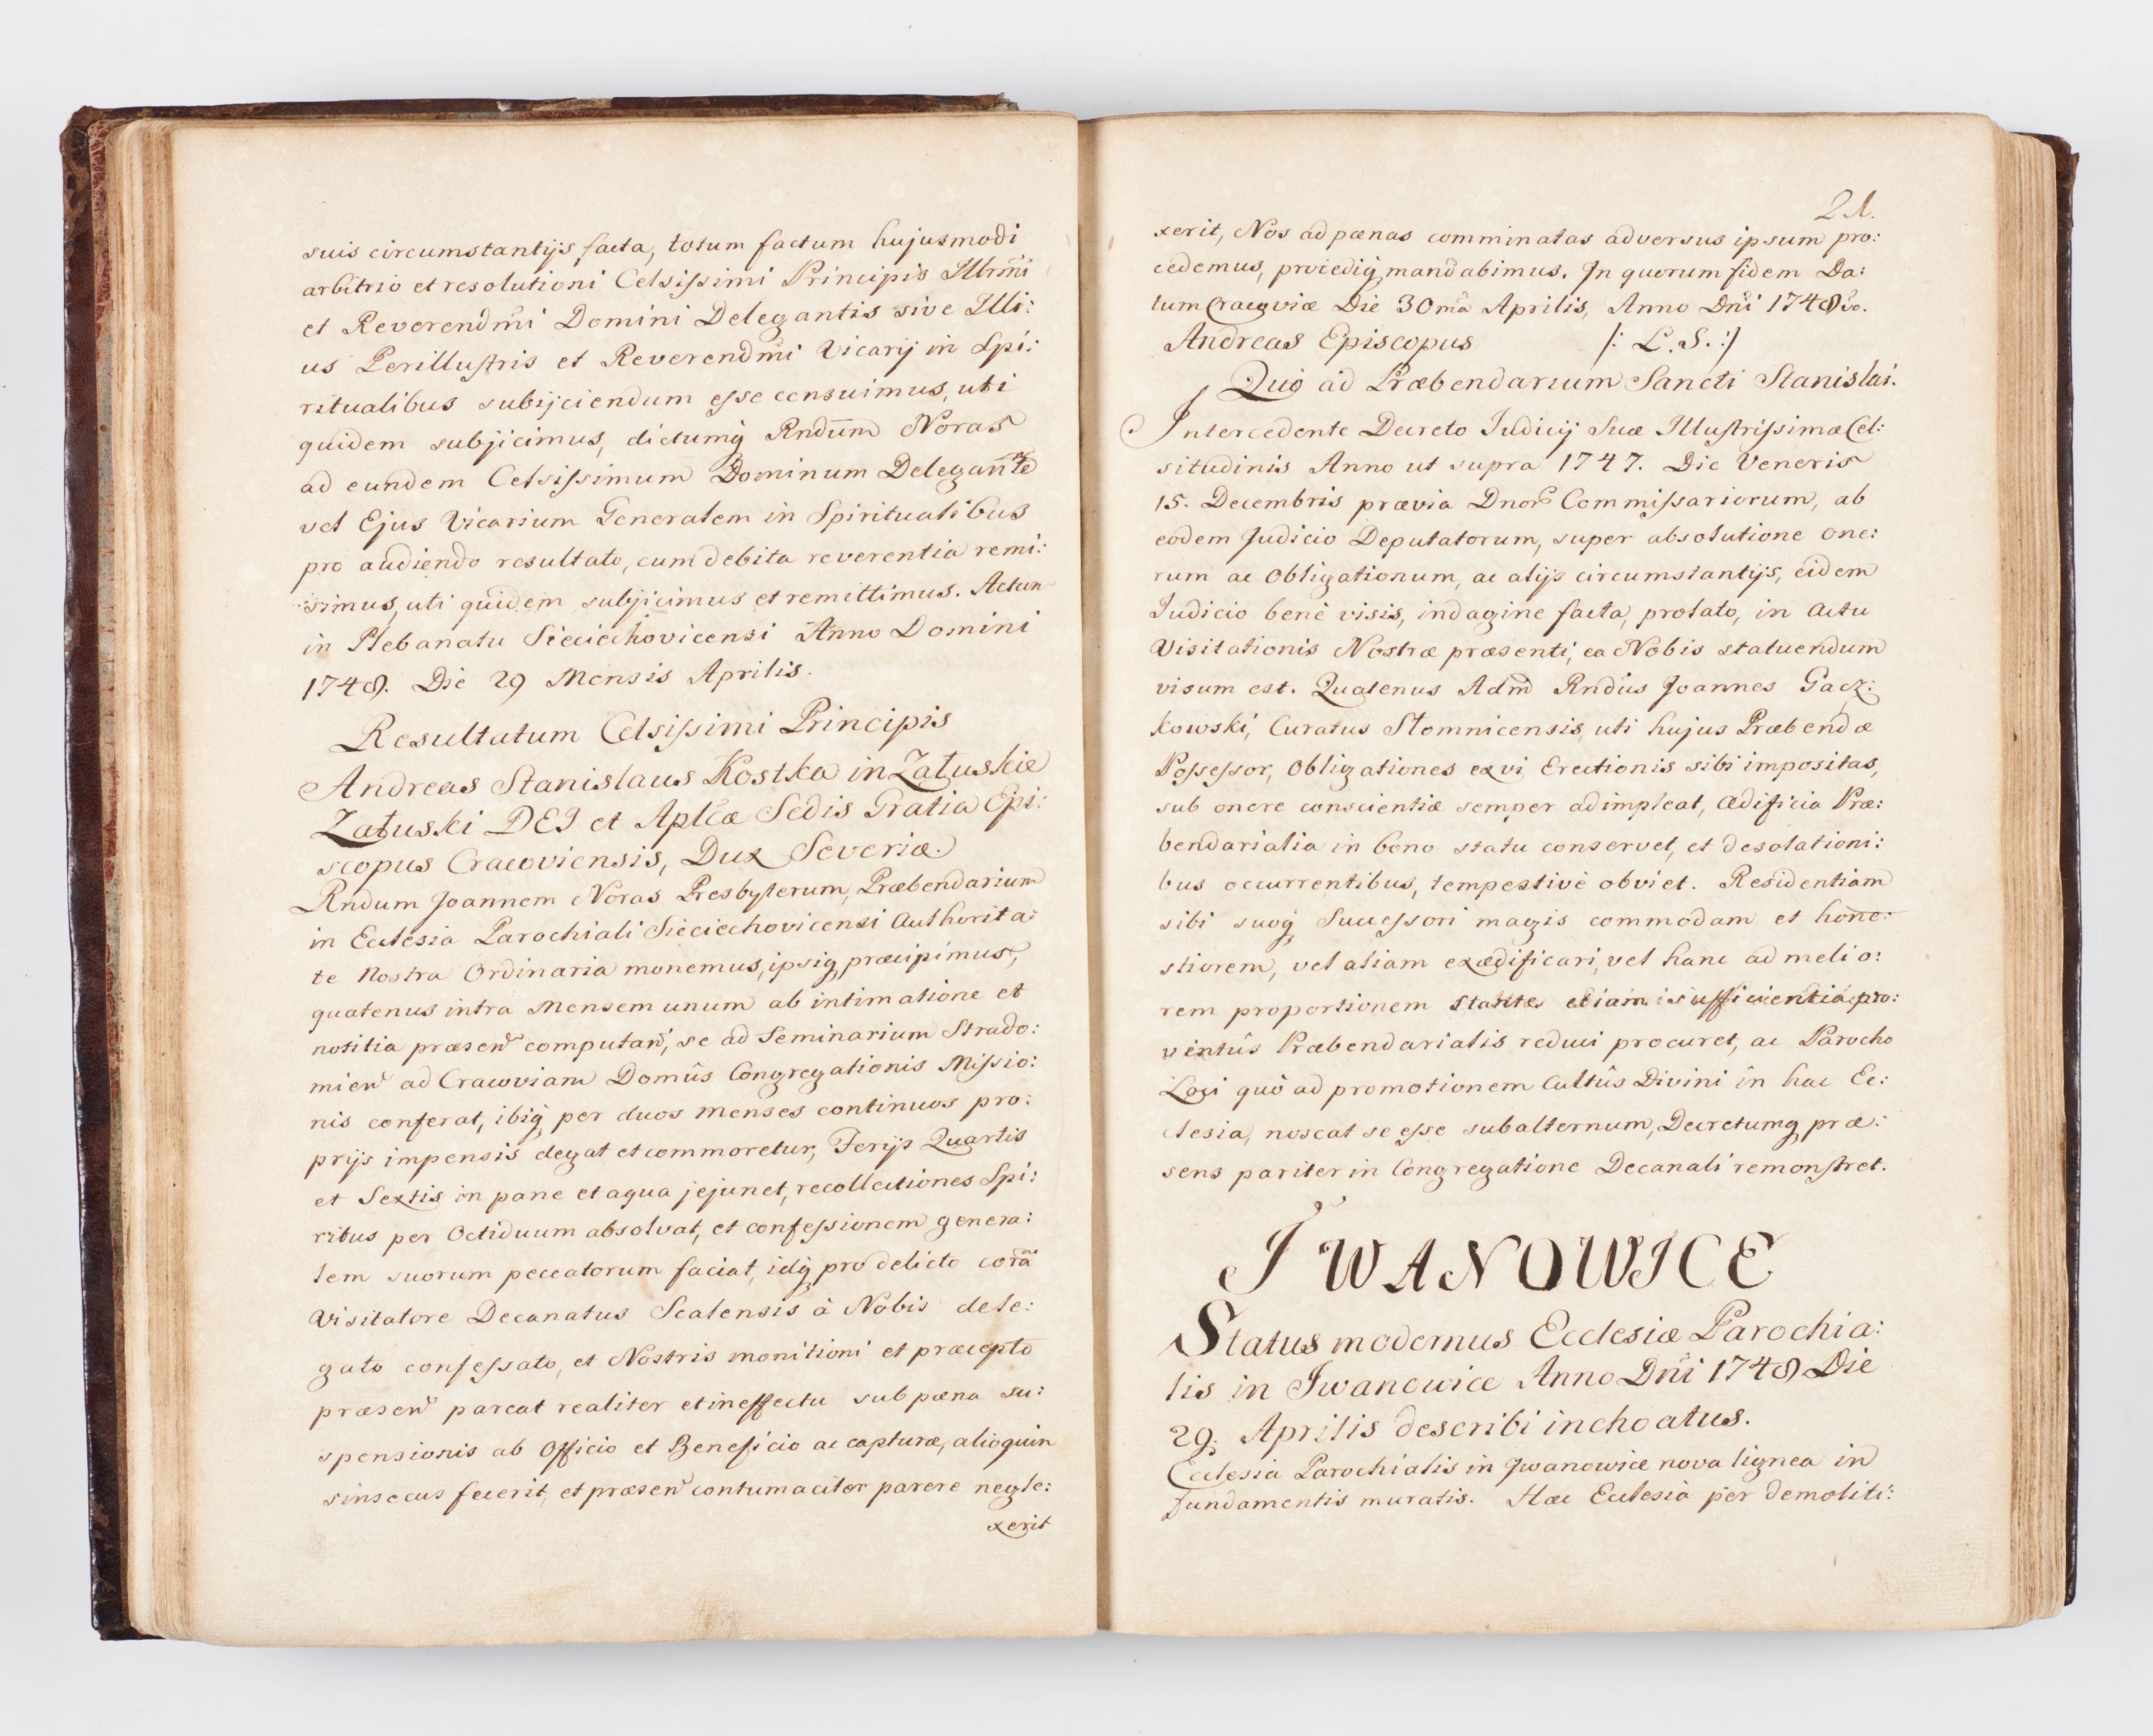 suis circumstantijs facta, totum factum hujusmodi
arbitrio et resolutioni Celsissimi Principis Illrm̃i
et Reverendm̃i Domini Delegantis sive Illi:
us Perillustris et Reverendm̃i Vicarij in Spi:
ritualibus subijciendum esse censuimus, uti
quidem subjicimus, dictumq́ Rndūm Noras
ad eundem Celsissimum Dominum Delegantē
vel Ejus Vicarium Generalem in Spiritualibus
pro audiendo resultato, cum debita reverentia remi:
simus, uti quidem subjicimus et remittimus. Actum
in Plebanatu Sieciechovicensi Anno Domini
1748. Die 29 Mensis Aprilis.
Resultatum Celsissimi Principis
Andreas Stanislaus Kostka in Załuskie
Załuski DEI et Aplćæ Sedis Gratia Epi:
scopus Cracoviensis, Dux Severiæ.
Rndum Joannem Noras Presbyterum, Præbendarium
in Ecclesia Parochiali Sieciechovicensi Authorita:
te Nostra Ordinaria monemus, ipsiq́ præcipimus,
quatenus intra Mensem unum ab intimatione et
notitia præsen̄ computan̄, se ad Seminarium Strado:
mien̄ ad Cracoviam Domûs Congregationis Missio:
nis conferat, ibiq́ per duos menses continuos pro:
prijs impensis degat et commoretur, Ferijs Quartis
et Sextis in pane et aqua jejunet, recollectiones Spi:
ritus per Octiduum absolvat, et confessionem genera:
lem suorum peccatorum faciat, idq́ pro delicto corā
Visitatore Decanatus Scalensis à Nobis dele:
gato confessato, et Nostris monitioni et præcepto
præsen̄ pareat realiter et in effectu sub pæna su:
spensionis ab Officio et Beneficio ac capturæ, alioquin
sinsecus fecerit, et præsen̄ contumaciter parere negle:
xerit
21.
xerit, Nos ad pænas comminatas adversus ipsum pro:
cedemus, procediq́ mandabimus. In quorum fidem Da:
tum Cracoviæ Die 30mâ Aprilis, Anno Dn̄i 1748vo.
Andreas Episcopus /: L. S. :/
Quò ad Præbendarium Sancti Stanislai.
Intercedente Decreto Iudicij Suæ Illustrissimæ Cel:
situdinis Anno ut supra 1747. Die Veneris
15. Decembris prævia Dnor̄ Commissariorum, ab
eodem Judicio Deputatorum, super absolutione one:
rum ac Obligationum, ac alijs circumstantijs, eidem
Iudicio benè visis, indagine facta, prolato, in Actu
Visitationis Nostræ præsenti, ea Nobis statuendum
visum est. Quatenus Adm̄ Rndūs Joannes Gacz:
kowski, Curatus Słomnicensis, uti hujus Præbendæ
Possessor, Obligationes ex vi Erectionis sibi impositas,
sub onere conscientiæ semper adimpleat, Ædificia Præ:
bendarialia in bono statu conservet, et desolationi:
bus occurrentibus, tempestivè obviet. Residentiam
sibi suoq́ Successori magis commodam et hone:
stiorem, vel aliam exædificari, vel hanc ad melio:
rem proportionem stante etiam sufficientia pro:
ventûs Præbendarialis reduci procuret, ac Parocho
Loci quò ad promotionem Cultûs Divini in hac Ec:
clesia, noscat se esse subalternum, Decretumq́ præ:
sens pariter in Congregatione Decanali remonstret.
IWANOWICE
Status modernus Ecclesiæ Parochia:
lis in Iwanowice Anno Dn̄i 1748 Die
29. Aprilis describi inchoatus.
Ecclesia Parochialis in Iwanowice nova lignea in
fundamentis muratis. Hæc Ecclesia per demoliti: